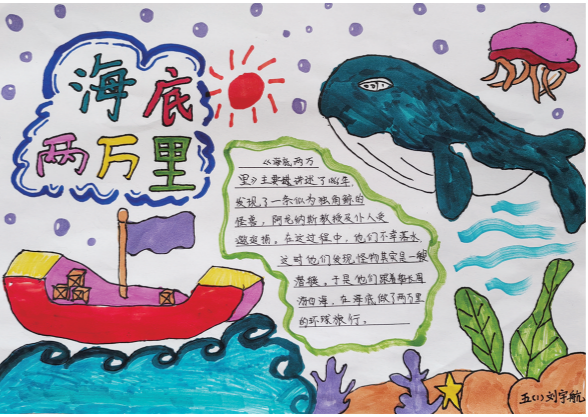 海底
两万里
《海底两万
里》主要讲述了1866年，
发现了一条似为独角鲸的
怪兽，阿龙纳斯教授及仆人受
邀追捕。在这过程中，他们不幸落水
这时他们发现怪物其实是一艘
潜艇。于是他们跟着船长周
游四海，在海底做了两万里
的环球旅行。
五(1)刘宇航